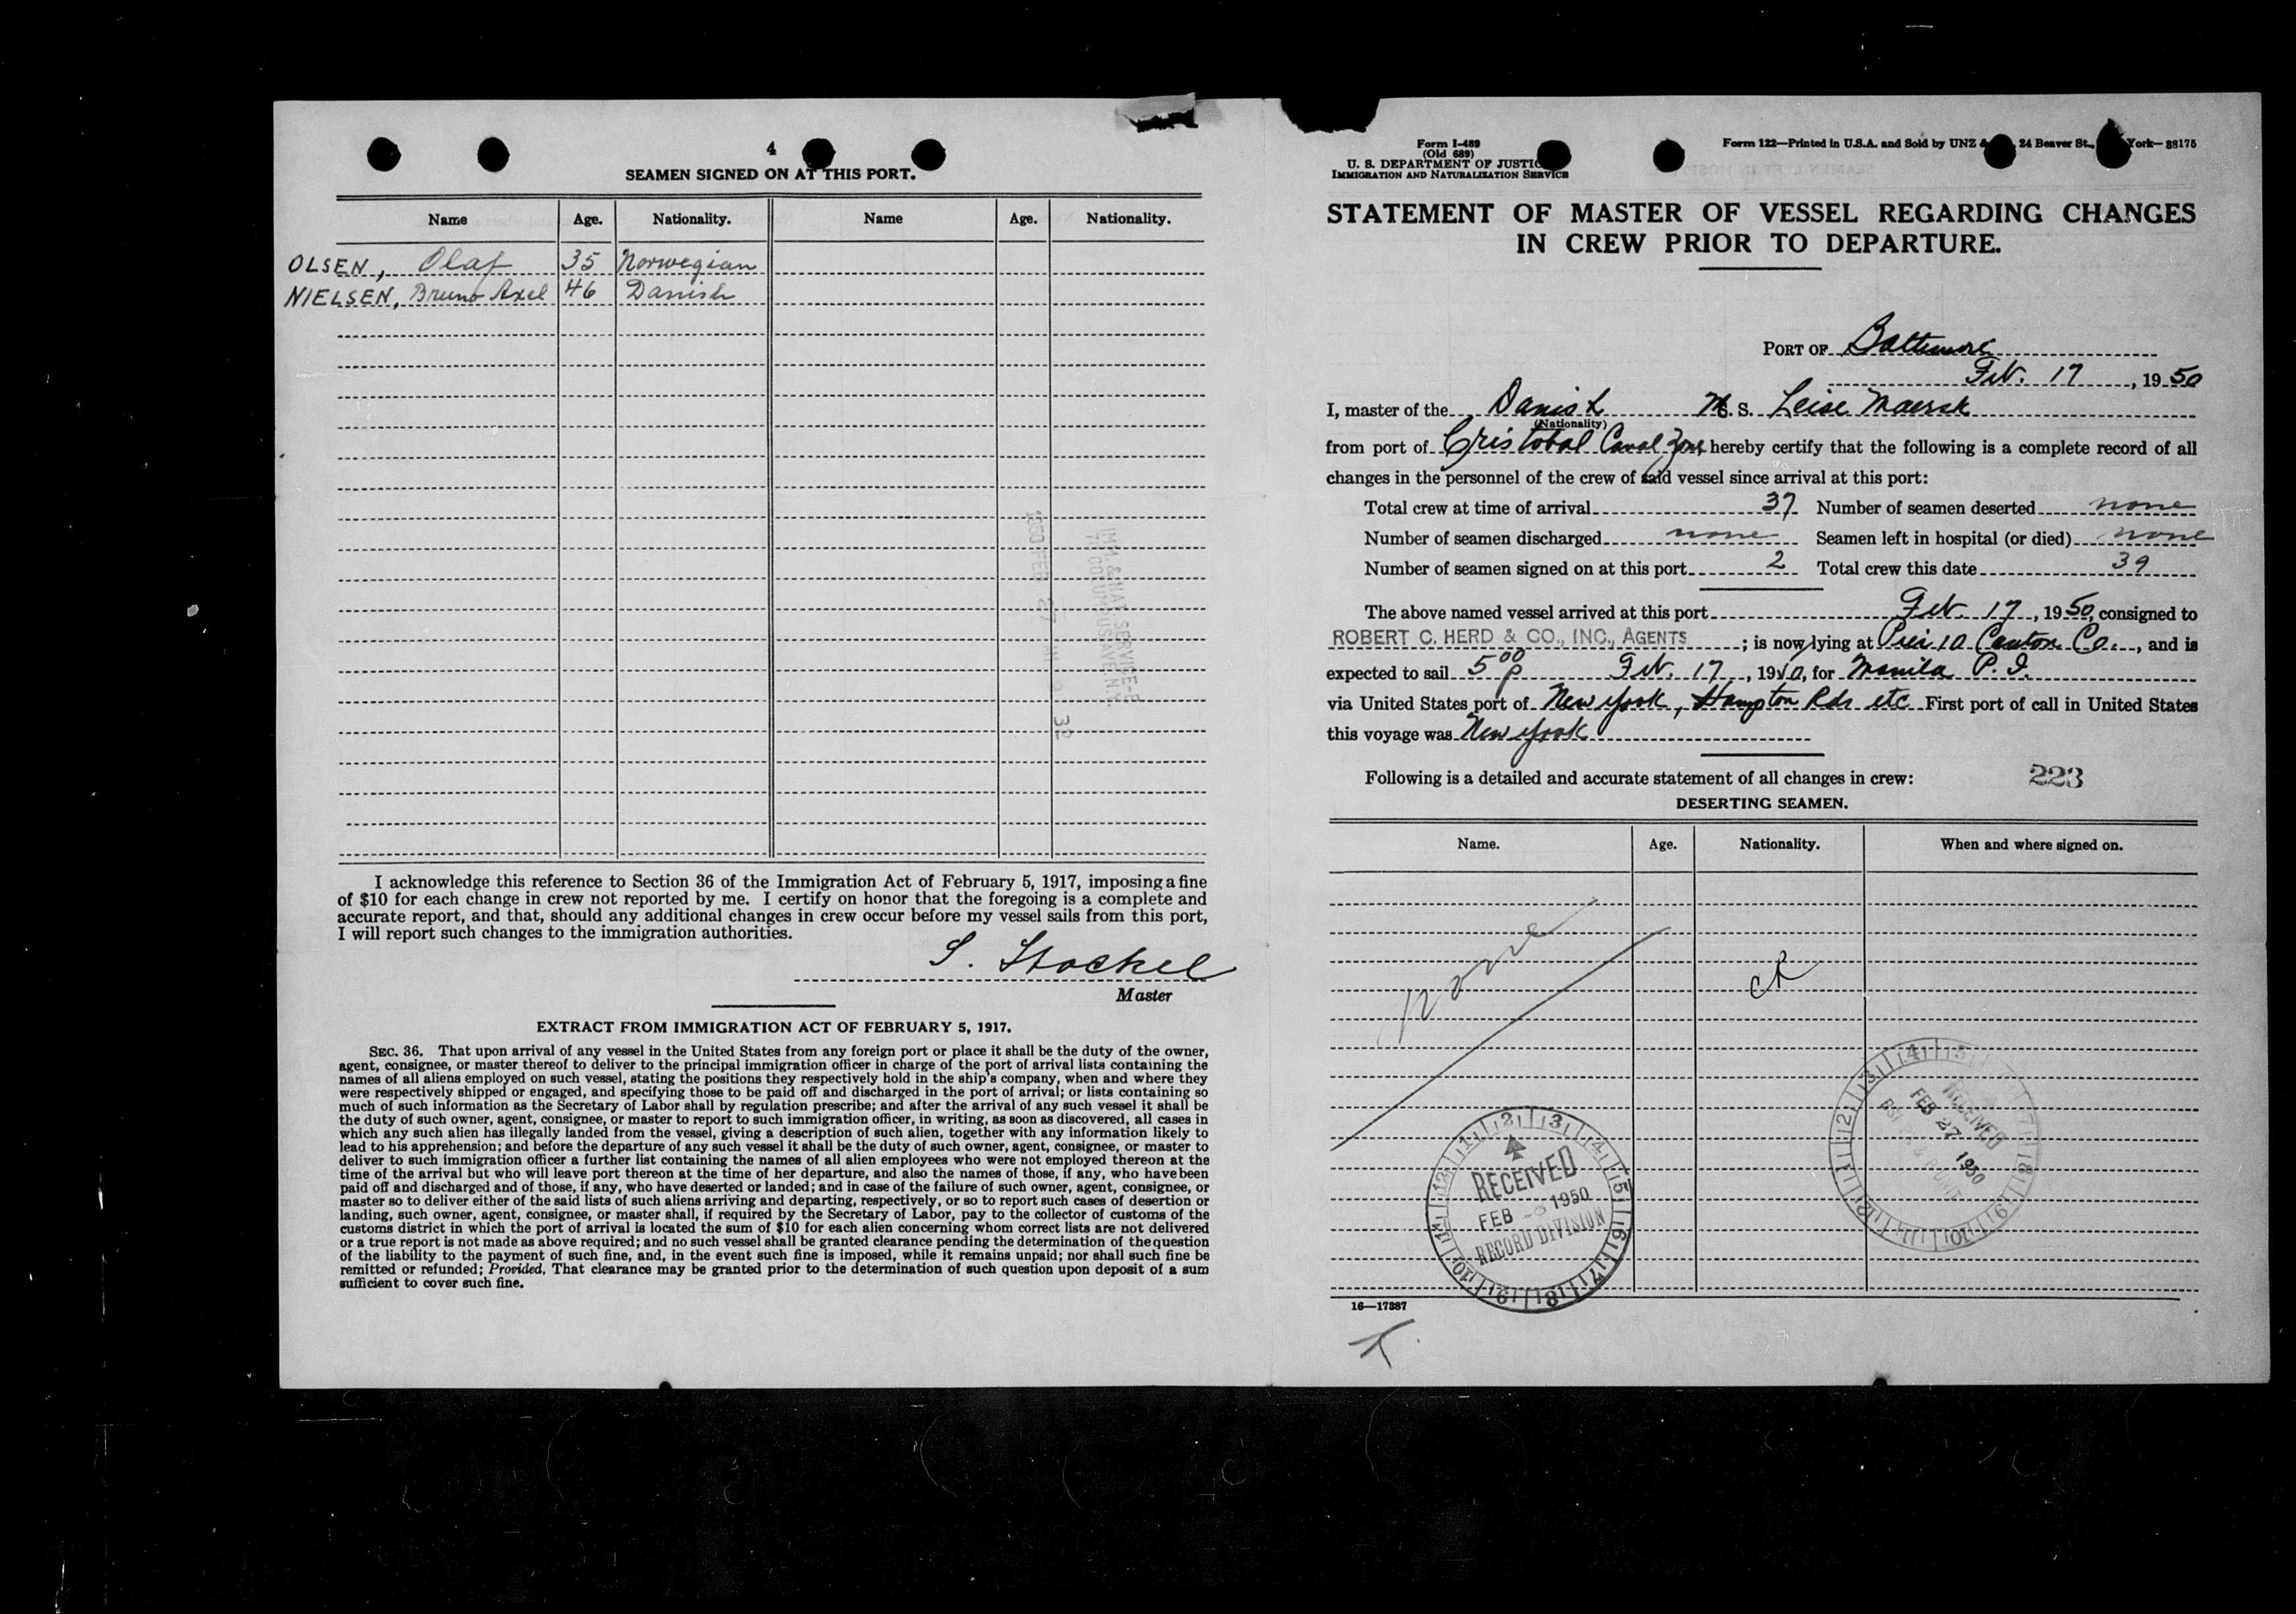 4
SEAMEN SIGNED ON AT THIS PORT.
Name Age. Nationality. Name Age. Nationality.
OLSEN, Olaf 35 Norwegian
NIELSEN, Bruno Axel 46 Danish
1950 FEB 27 9 32
IMM. & NAT. SERVICE
70 COLUMBUS AVE. N.Y.
I acknowledge this reference to Section 36 of the Immigration Act of February 5, 1917, imposing a fine
of $10 for each change in crew not reported by me. I certify on honor that the foregoing is a complete and
accurate report, and that, should any additional changes in crew occur before my vessel sails from this port,
I will report such changes to the immigration authorities.
S. Stockel
Master
EXTRACT FROM IMMIGRATION ACT OF FEBRUARY 5, 1917.
SEC. 36. That upon arrival of any vessel in the United States from any foreign port or place it shall be the duty of the owner,
agent, consignee, or master thereof to deliver to the principal immigration officer in charge of the port of arrival lists containing the
names of all aliens employed on such vessel, stating the positions they respectively hold in the ship's company, when and where they
were respectively shipped or engaged, and specifying those to be paid off and discharged in the port of arrival; or lists containing so
much of such information as the Secretary of Labor shall by regulation prescribe; and after the arrival of any such vessel it shall be
the duty of such owner, agent, consignee, or master to report to such immigration officer, in writing, as soon as discovered, all cases in
which any such alien has illegally landed from the vessel, giving a description of such alien, together with any information likely to
lead to his apprehension; and before the departure of any such vessel it shall be the duty of such owner, agent, consignee, or master to
deliver to such immigration officer a further list containing the names of all alien employees who were not employed thereon at the
time of the arrival but who will leave port thereon at the time of her departure, and also the names of those, if any, who have been
paid off and discharged and of those, if any, who have deserted or landed; and in case of the failure of such owner, agent, consignee, or
master so to deliver either of the said lists of such aliens arriving and departing, respectively, or so to report such cases of desertion or
landing, such owner, agent, consignee, or master shall, if required by the Secretary of Labor, pay to the collector of customs of the
customs district in which the port of arrival is located the sum of $10 for each alien concerning whom correct lists are not delivered
or a true report is not made as above required; and no such vessel shall be granted clearance pending the determination of the question
of the liability to the payment of such fine, and, in the event such fine is imposed, while it remains unpaid; nor shall such fine be
remitted or refunded; Provided, That clearance may be granted prior to the determination of such question upon deposit of a sum
sufficient to cover such fine.
Form I-489
(Old 689)
U. S. DEPARTMENT OF JUSTICE
IMMIGRATION AND NATURALIZATION SERVICE
Form 122—Printed in U.S.A. and Sold by UNZ & 24 Beaver St., York—38175
STATEMENT OF MASTER OF VESSEL REGARDING CHANGES
IN CREW PRIOR TO DEPARTURE.
PORT OF Baltimore
Feb. 17, 1950
I, master of the Danish M. S. Leise Maersk
(Nationality)
from port of Cristobal Canal Zone hereby certify that the following is a complete record of all
changes in the personnel of the crew of said vessel since arrival at this port:
Total crew at time of arrival 37 Number of seamen deserted none
Number of seamen discharged none Seamen left in hospital (or died) none
Number of seamen signed on at this port 2 Total crew this date 39
The above named vessel arrived at this port Feb. 17, 1950, consigned to
ROBERT C. HERD & CO., INC., AGENTS; is now lying at Pier 10 Canton Co., and is
expected to sail 5 00 p Feb. 17, 1950, for Manila P. I.
via United States port of New York, Hampton Rds etc First port of call in United States
this voyage was New York
Following is a detailed and accurate statement of all changes in crew: 223
DESERTING SEAMEN.
Name. Age. Nationality. When and where signed on.
none
RECEIVED
FEB 1950
RECORD DIVISION
RECEIVED
FEB 27 1950
16—17887